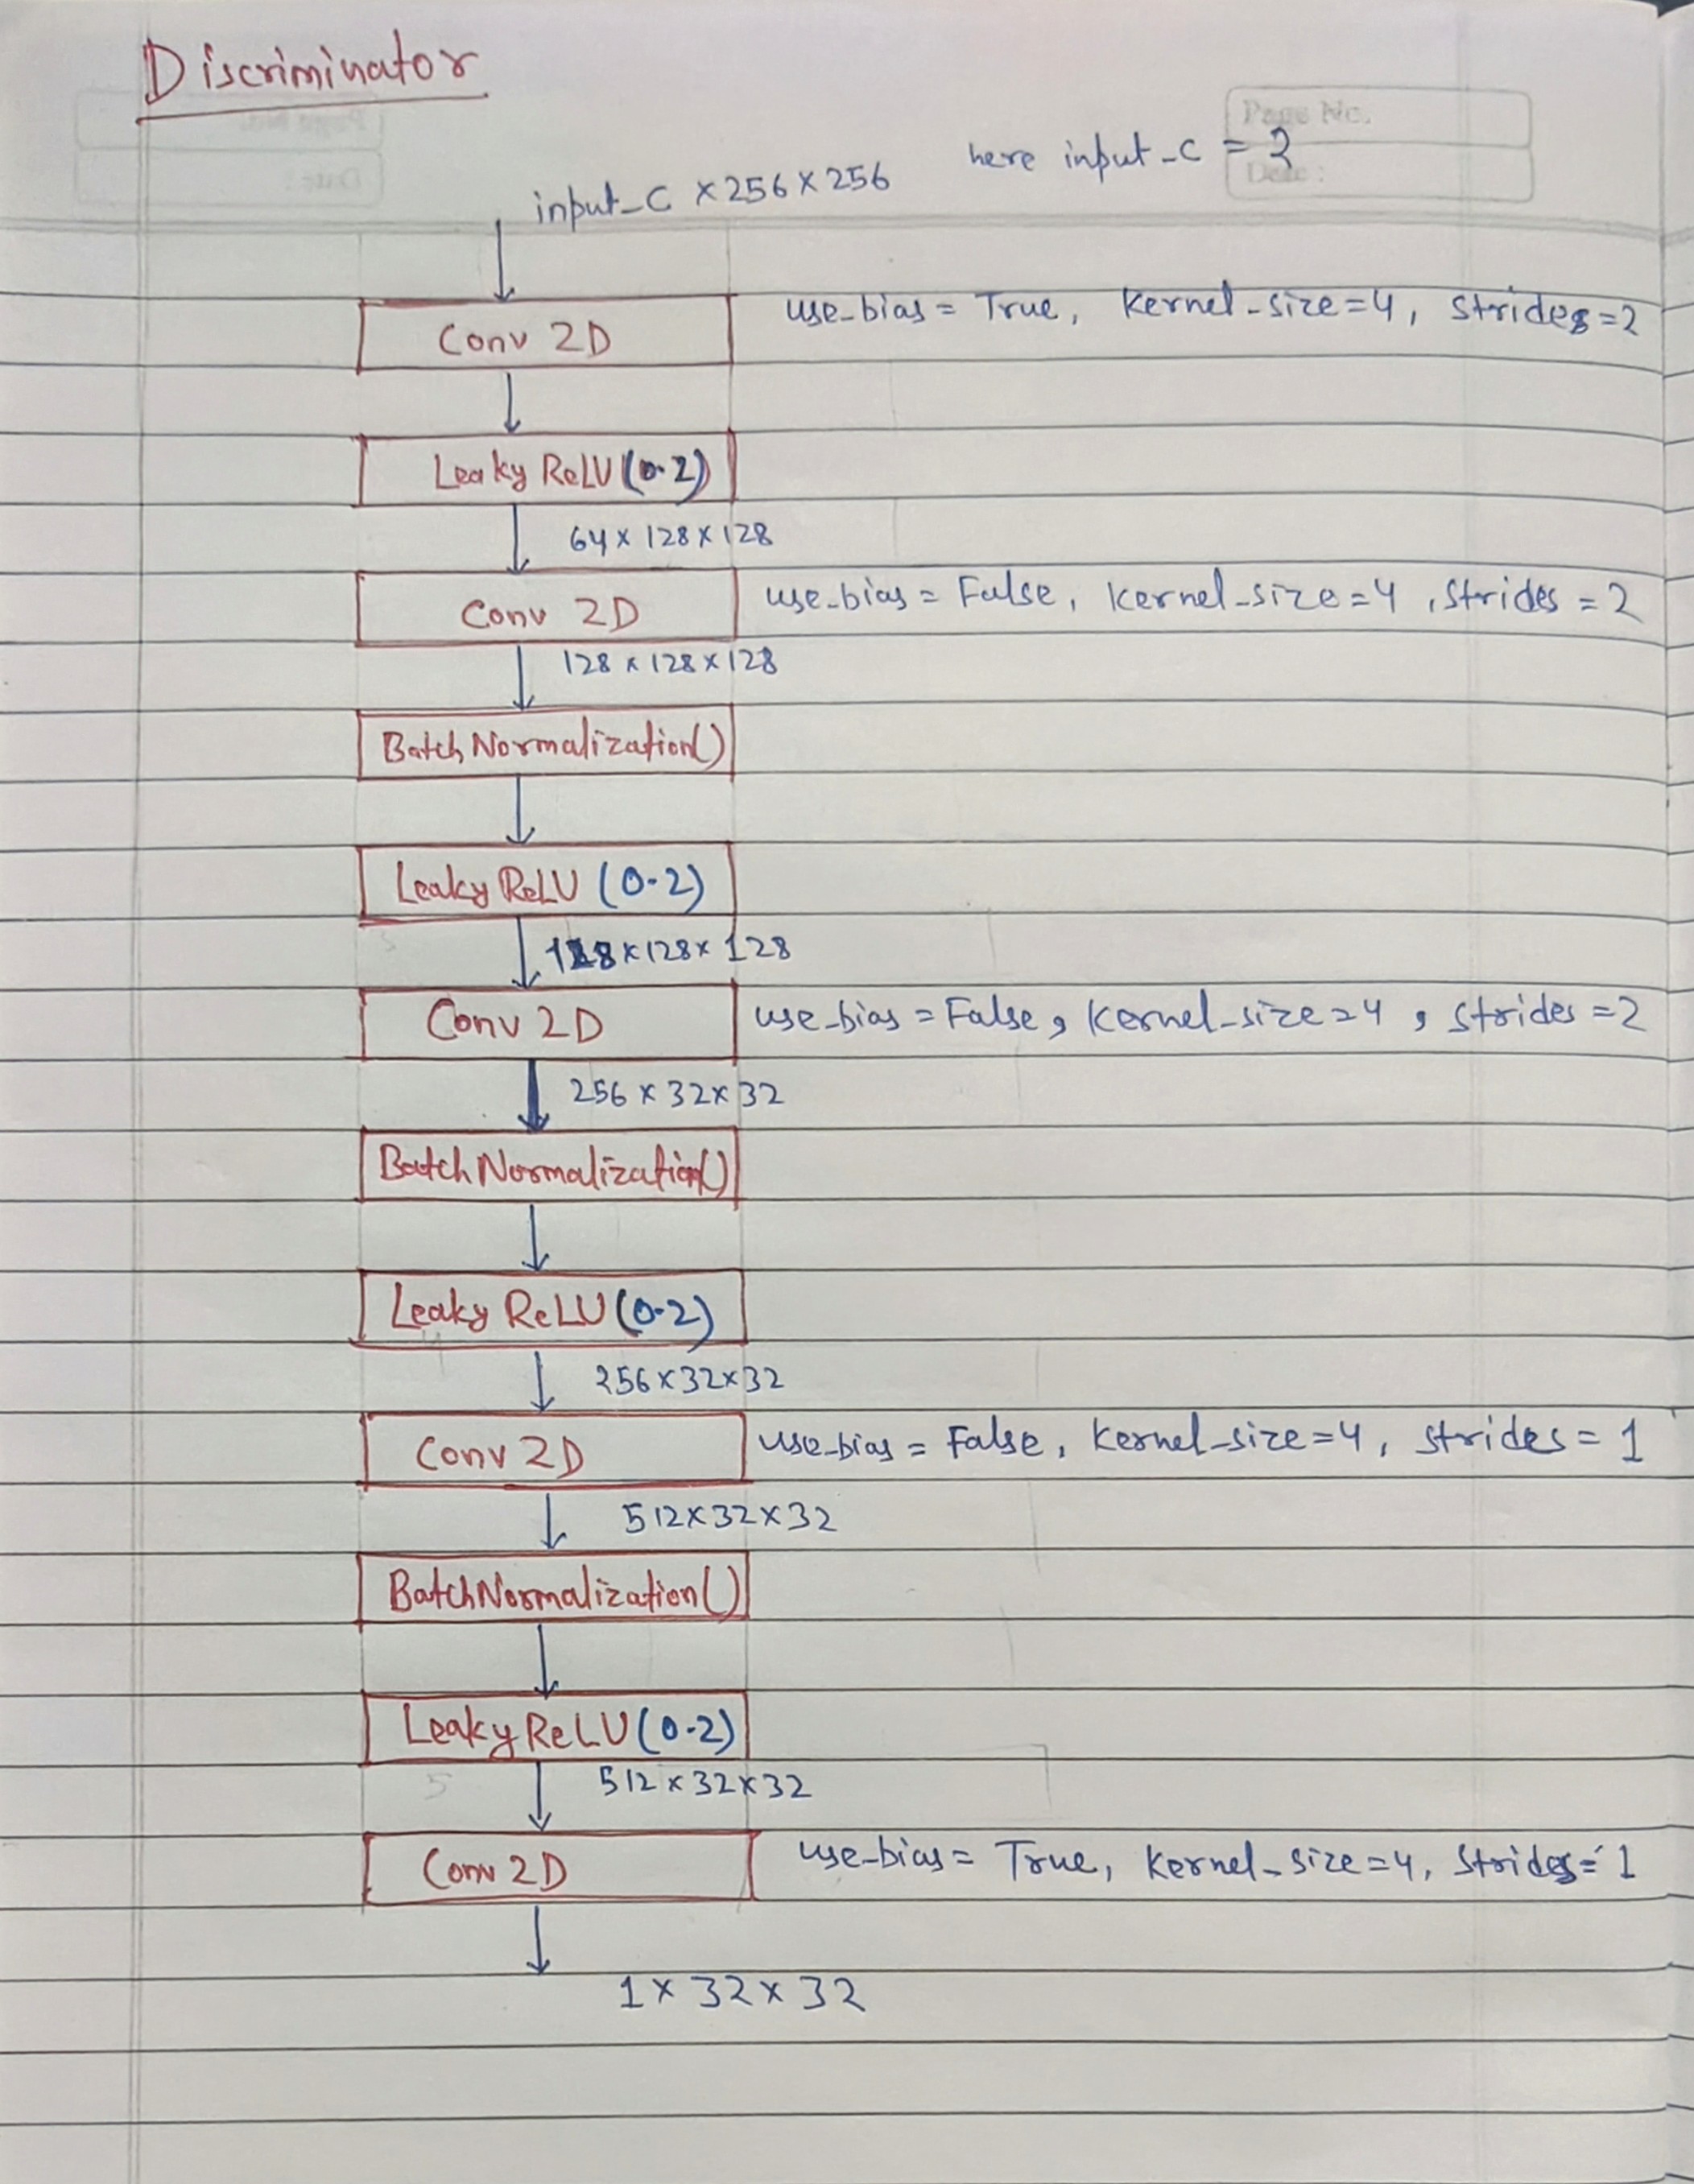 Discriminator
Page No.
Date :
here input_c = 3
input_c × 256 × 256
Conv 2D
use_bias = True, Kernel_size=4, strides=2
Leaky ReLU (0.2)
64 × 128 × 128
Conv 2D
use_bias = False, Kernel_size=4, strides = 2
128 × 128 × 128
Batch Normalization()
Leaky ReLU (0.2)
128 × 128 × 128
Conv 2D
use_bias = False, Kernel_size=4, strides = 2
256 × 32 × 32
Batch Normalization()
Leaky ReLU (0.2)
256 × 32 × 32
Conv 2D
use_bias = False, Kernel_size=4, strides = 1
512 × 32 × 32
BatchNormalization()
Leaky ReLU (0.2)
512 × 32 × 32
Conv 2D
use_bias = True, Kernel_size=4, strides = 1
1 × 32 × 32